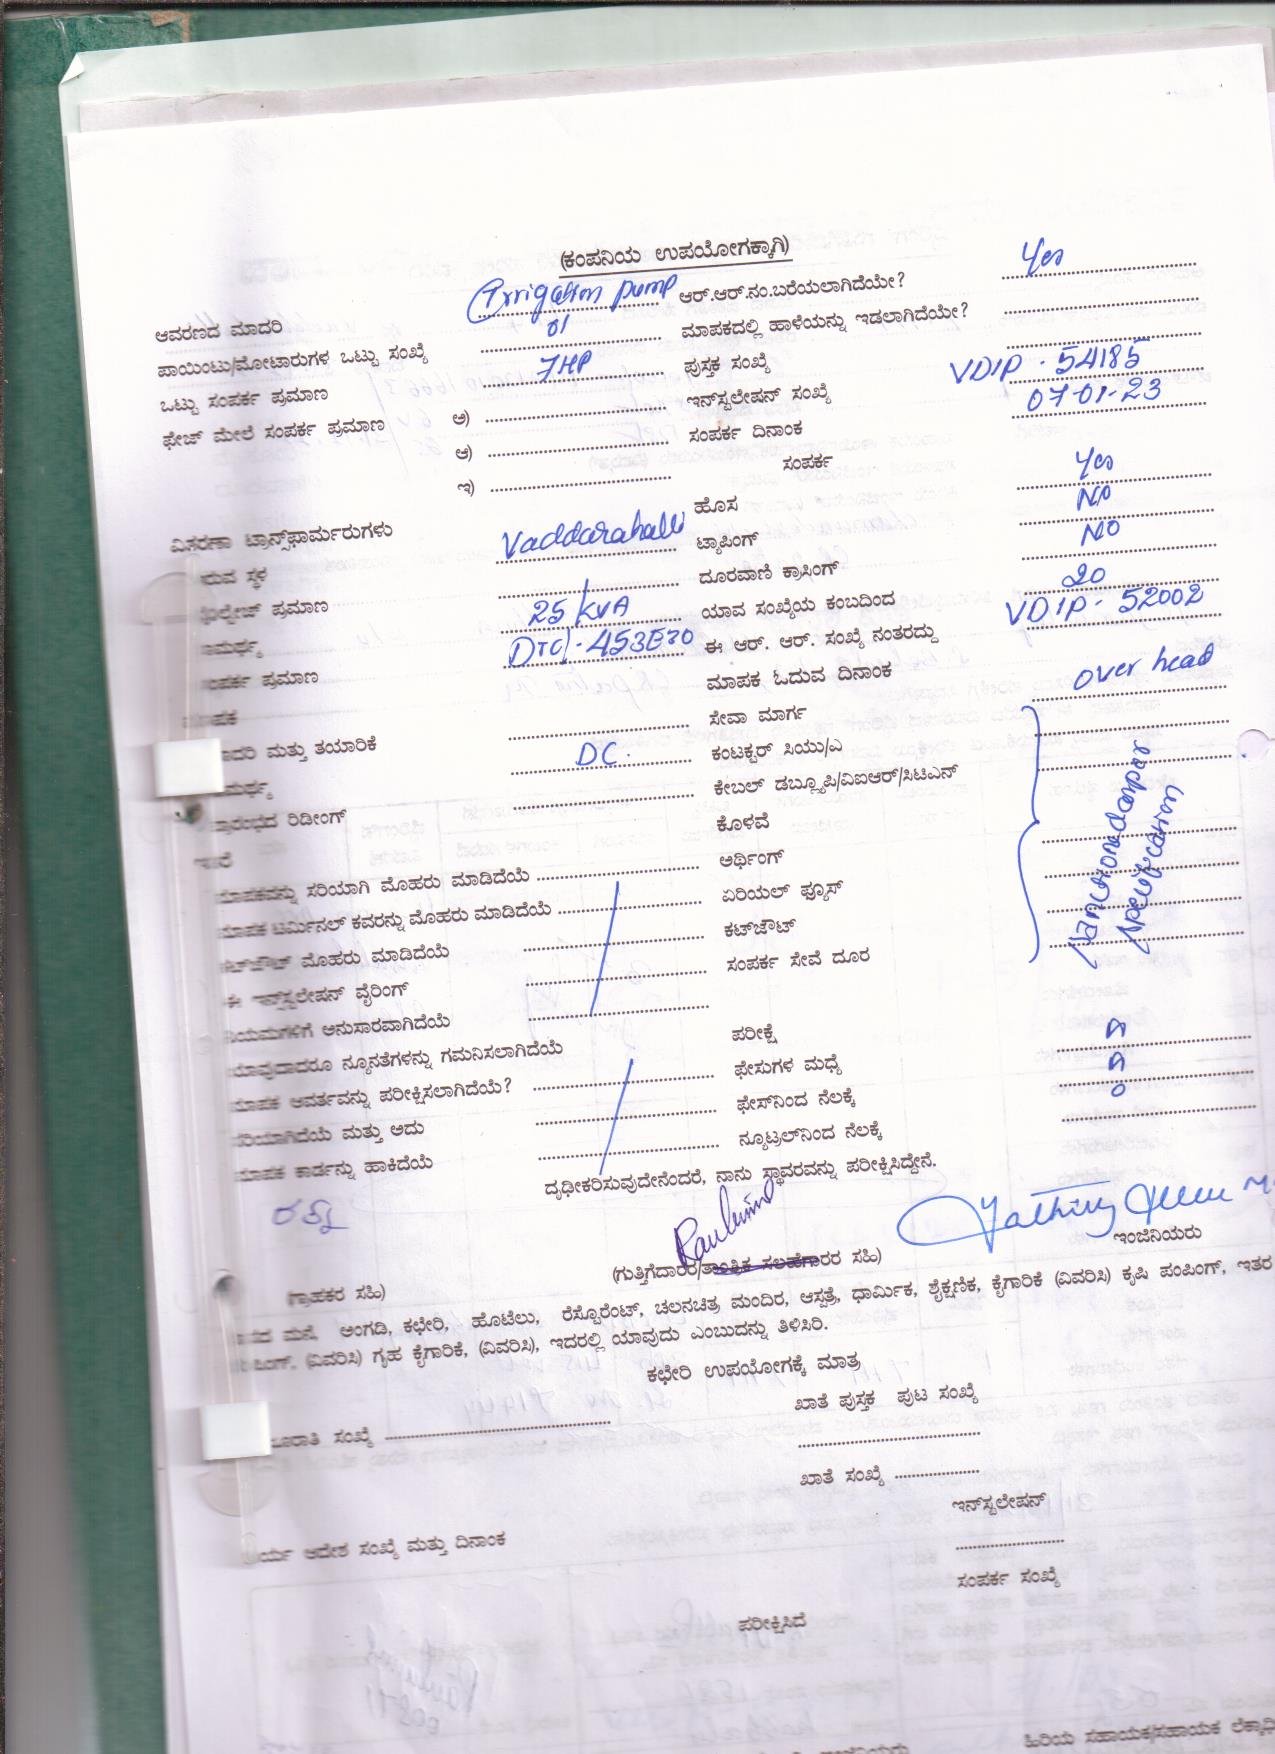 (ಕಂಪನಿಯ ಉಪಯೋಗಕ್ಕಾಗಿ)
ಆವರಣದ ಮಾದರಿ Irrigation pump ಆರ್.ಆರ್.ನಂ.ಬರೆಯಲಾಗಿದೆಯೇ? Yes
ಪಾಯಿಂಟು/ಮೋಟಾರುಗಳ ಒಟ್ಟು ಸಂಖ್ಯೆ 01 ಮಾಪಕದಲ್ಲಿ ಹಾಳೆಯನ್ನು ಇಡಲಾಗಿದೆಯೇ?
ಒಟ್ಟು ಸಂಪರ್ಕ ಪ್ರಮಾಣ 7HP ಪುಸ್ತಕ ಸಂಖ್ಯೆ
ಫೇಜ್ ಮೇಲೆ ಸಂಪರ್ಕ ಪ್ರಮಾಣ ಅ) ಇನ್‌ಸ್ಟಲೇಷನ್ ಸಂಖ್ಯೆ VDIP - 54185
ಆ) ಸಂಪರ್ಕ ದಿನಾಂಕ 07-01-23
ಇ) ಸಂಪರ್ಕ
ವಿಸರಣಾ ಟ್ರಾನ್ಸ್‌ಫಾರ್ಮರುಗಳು ಹೊಸ Yes
ರುವ ಸ್ಥಳ Vaddarahalli ಟ್ಯಾಪಿಂಗ್ NO
ಪ್ರಮಾಣ ದೂರವಾಣಿ ಕ್ರಾಸಿಂಗ್ NO
ಮರ್ಥ್ಯ 25 KVA ಯಾವ ಸಂಖ್ಯೆಯ ಕಂಬದಿಂದ 20
ಸಂಪರ್ಕ ಪ್ರಮಾಣ DTC - 453E30 ಈ ಆರ್. ಆರ್. ಸಂಖ್ಯೆ ನಂತರದ್ದು VDIP - 52002
ಪಕ ಮಾಪಕ ಓದುವ ದಿನಾಂಕ
ದರಿ ಮತ್ತು ತಯಾರಿಕೆ ಸೇವಾ ಮಾರ್ಗ over head
ಮರ್ಥ್ಯ DC. ಕಂಟಕ್ಟರ್ ಸಿಯು/ಎ
ಪ್ರಾರಂಭದ ರಿಡೀಂಗ್ ಕೇಬಲ್ ಡಬ್ಲ್ಯೂಪಿ/ವಿಐಆರ್/ಸಿಟಿಎಸ್
ಕೊಳವೆ
ಮಾಪಕವನ್ನು ಸರಿಯಾಗಿ ಮೊಹರು ಮಾಡಿದೆಯೆ ಅರ್ಥಿಂಗ್
ಮಾಪಕ ಟರ್ಮಿನಲ್ ಕವರನ್ನು ಮೊಹರು ಮಾಡಿದೆಯೆ ಏರಿಯಲ್ ಫ್ಯೂಸ್
ಕಟ್‌ಔಟ್ ಮೊಹರು ಮಾಡಿದೆಯೆ ಕಟ್‌ಔಟ್
ಈ ಇನ್‌ಸ್ಟಲೇಷನ್ ವೈರಿಂಗ್ ಸಂಪರ್ಕ ಸೇವೆ ದೂರ
ನಿಯಮಗಳಿಗೆ ಅನುಸಾರವಾಗಿದೆಯೆ
ಯಾವುದಾದರೂ ನ್ಯೂನತೆಗಳನ್ನು ಗಮನಿಸಲಾಗಿದೆಯೆ ಪರೀಕ್ಷೆ
ಮಾಪಕ ಆವರ್ತವನ್ನು ಪರೀಕ್ಷಿಸಲಾಗಿದೆಯೆ? ಫೇಸುಗಳ ಮಧ್ಯೆ
ಸರಿಯಾಗಿದೆಯೆ ಮತ್ತು ಅದು ಫೇಸ್‌ನಿಂದ ನೆಲಕ್ಕೆ
ಮಾಪಕ ಕಾರ್ಡನ್ನು ಹಾಕಿದೆಯೆ ನ್ಯೂಟ್ರಲ್‌ನಿಂದ ನೆಲಕ್ಕೆ
ದೃಢೀಕರಿಸುವುದೇನೆಂದರೆ, ನಾನು ಸ್ಥಾವರವನ್ನು ಪರೀಕ್ಷಿಸಿದ್ದೇನೆ.
ಇಂಜಿನಿಯರು
(ಗ್ರಾಹಕರ ಸಹಿ) (ಗುತ್ತಿಗೆದಾರರ/ತಾಂತ್ರಿಕ ಸಲಹೆಗಾರರ ಸಹಿ)
ಮನೆ, ಅಂಗಡಿ, ಕಛೇರಿ, ಹೊಟೆಲು, ರೆಸ್ಟೊರೆಂಟ್, ಚಲನಚಿತ್ರ ಮಂದಿರ, ಆಸ್ಪತ್ರೆ, ಧಾರ್ಮಿಕ, ಶೈಕ್ಷಣಿಕ, ಕೈಗಾರಿಕೆ (ವಿವರಿಸಿ) ಕೃಷಿ ಪಂಪಿಂಗ್, ಇತರ
ಪಿಂಗ್, (ವಿವರಿಸಿ) ಗೃಹ ಕೈಗಾರಿಕೆ, (ವಿವರಿಸಿ), ಇದರಲ್ಲಿ ಯಾವುದು ಎಂಬುದನ್ನು ತಿಳಿಸಿರಿ.
ಕಛೇರಿ ಉಪಯೋಗಕ್ಕೆ ಮಾತ್ರ
ಖಾತೆ ಪುಸ್ತಕ ಪುಟ ಸಂಖ್ಯೆ
ಜೂರಾತಿ ಸಂಖ್ಯೆ
ಖಾತೆ ಸಂಖ್ಯೆ
ಇನ್‌ಸ್ಟಲೇಷನ್
ರ್ಯ ಆದೇಶ ಸಂಖ್ಯೆ ಮತ್ತು ದಿನಾಂಕ
ಸಂಪರ್ಕ ಸಂಖ್ಯೆ
ಪರೀಕ್ಷಿಸಿದೆ
ಹಿರಿಯ ಸಹಾಯಕ/ಸಹಾಯಕ